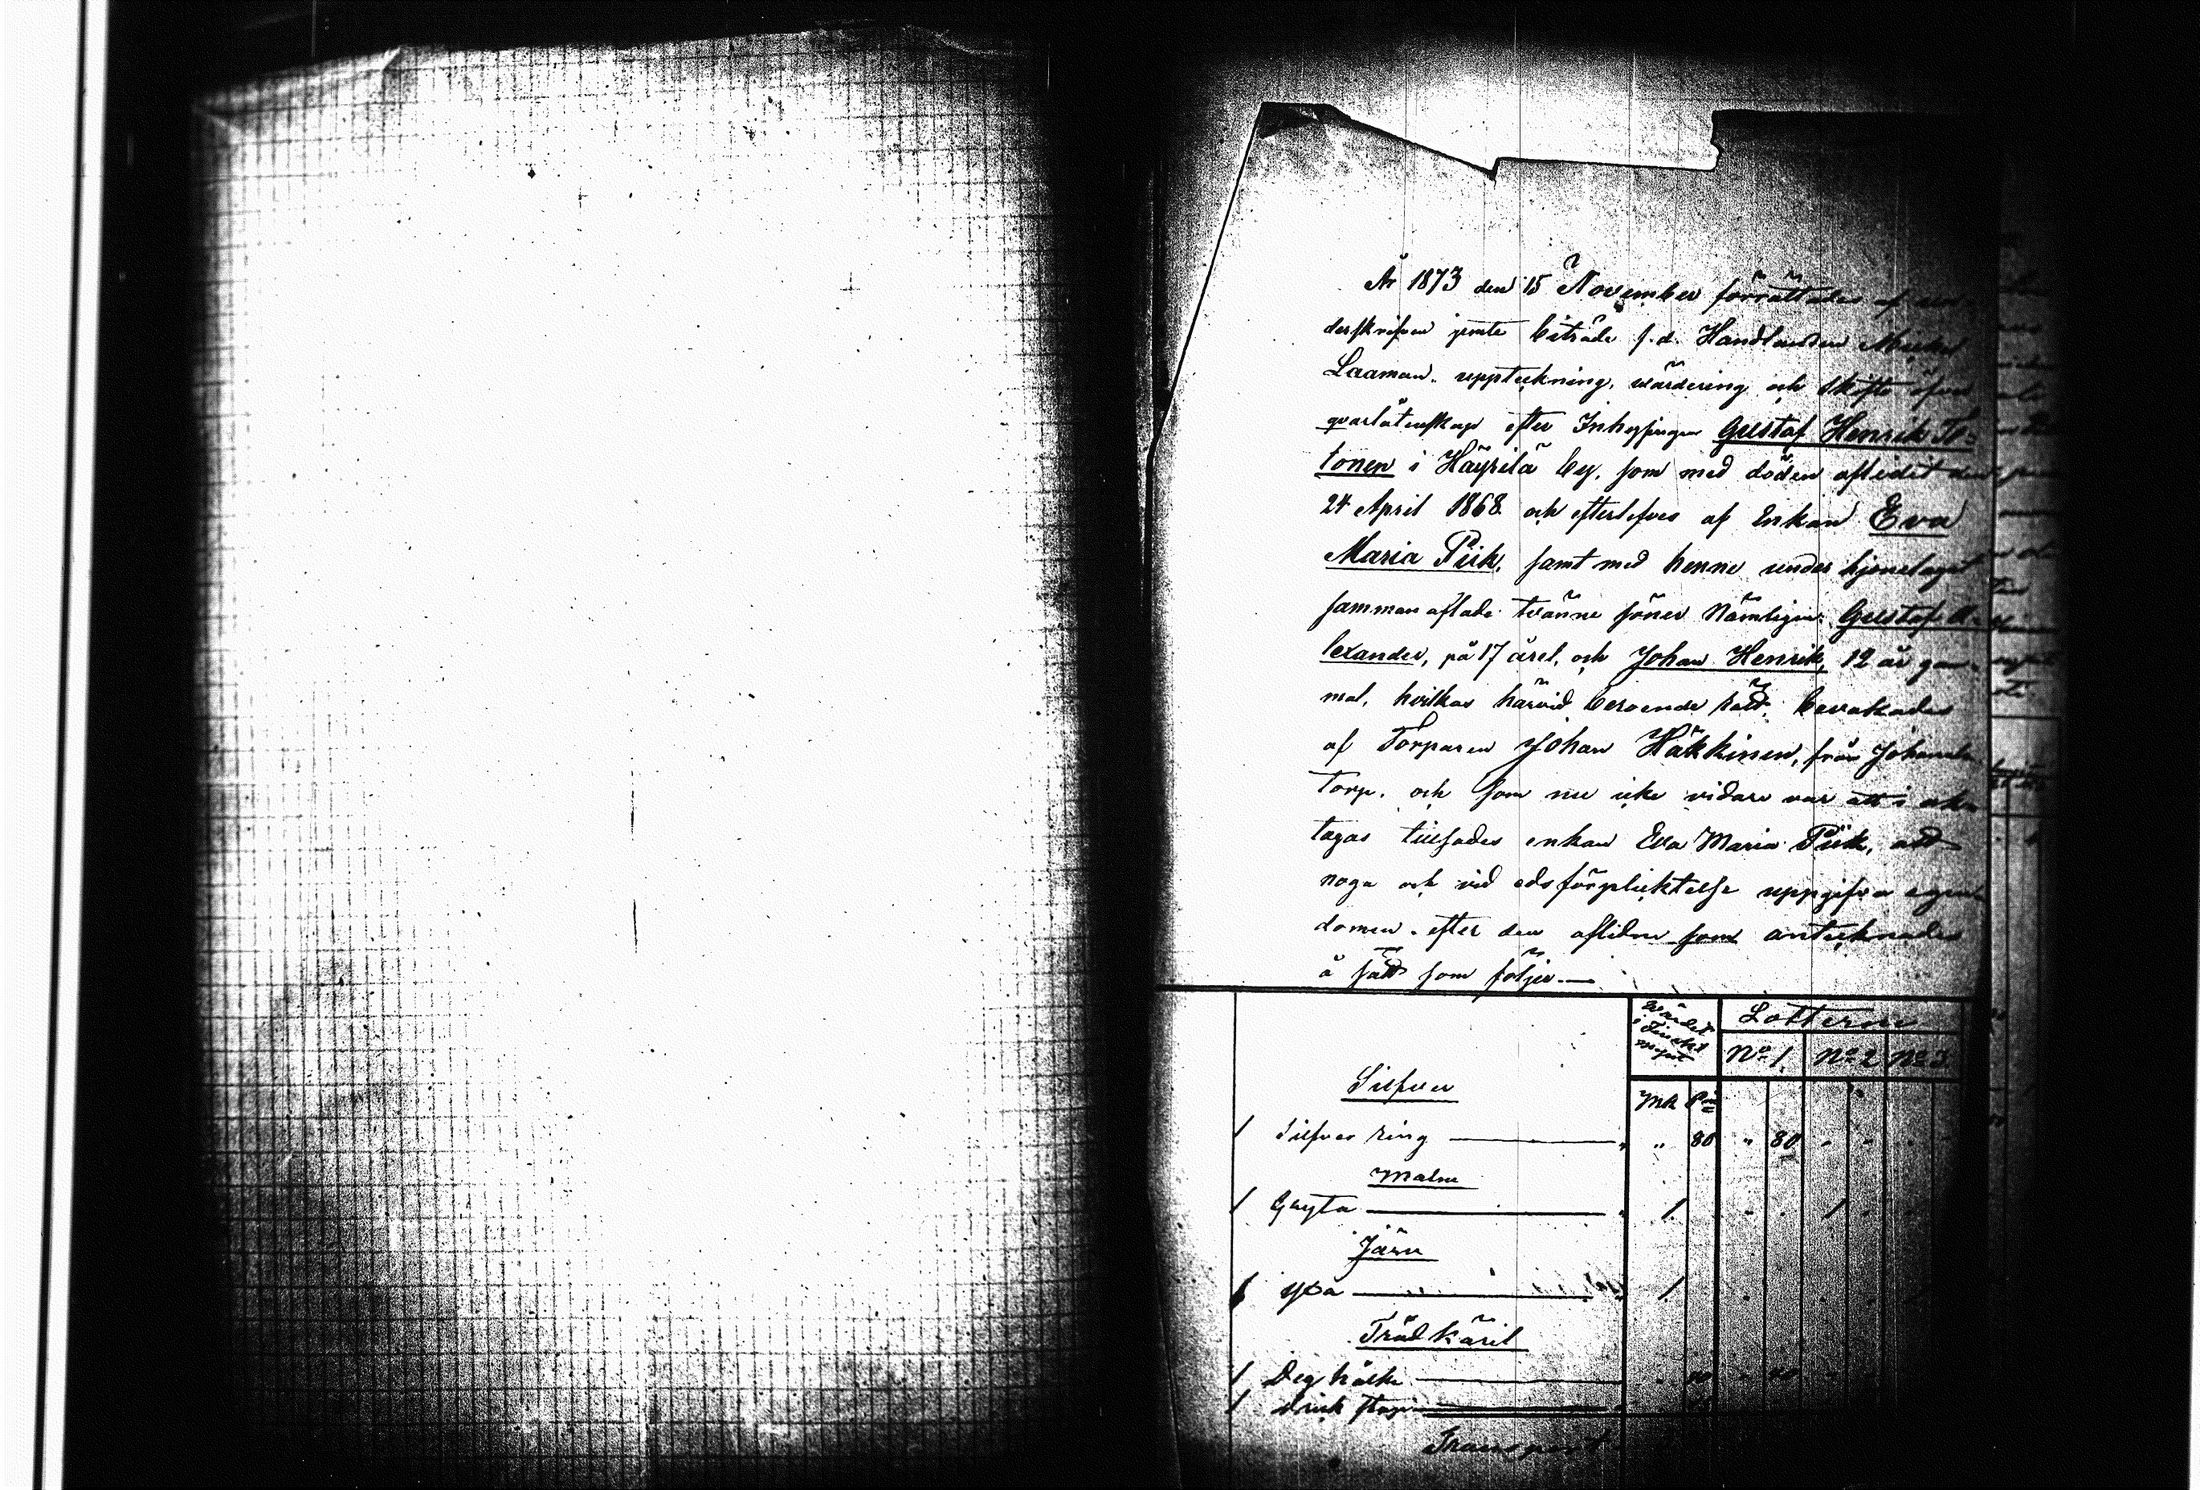 År 1873 den 15 November förrättades af un-
derskrifven jemte biträde f.d. Handlanden Mickel
Laaman. uppteckning, wärdering och skifte öfver
qvarlåtenskap efter Inhysingen Gustaf Henrik To-
tonen i Häyrilä by, som med döden aflidit den
24 April 1868 och efterlefves af Enkan Eva
Maria Piik, samt med henne under hjonelaget
sammanaflade tvänne söner Nämligen: Gustaf A-
lexander, på 17 året, och Johan Henrik, 12 år gam-
mal, hvilkas härvid beroende rätt, bevakades
af Torparen Johan Häkkinen, från Johanola
Torp. och som nu icke vidare var att i akt-
tagas tillsades enkan Eva Maria Piik, att
noga och vid edsförpliktelse uppgifva egen-
domen efter den aflidne som antecknades
å sätt som följer.—
Wärdet i Finskt mynt Lotterne
No 1. No 2 No 3
Silfver
Mk Pni
1 Silfver ring „ 80 „ 80
Malm
1 Gryta 1 1
Järn
1 yxa 1
Träd käril
1 Deg hålk
1 drick
Transport